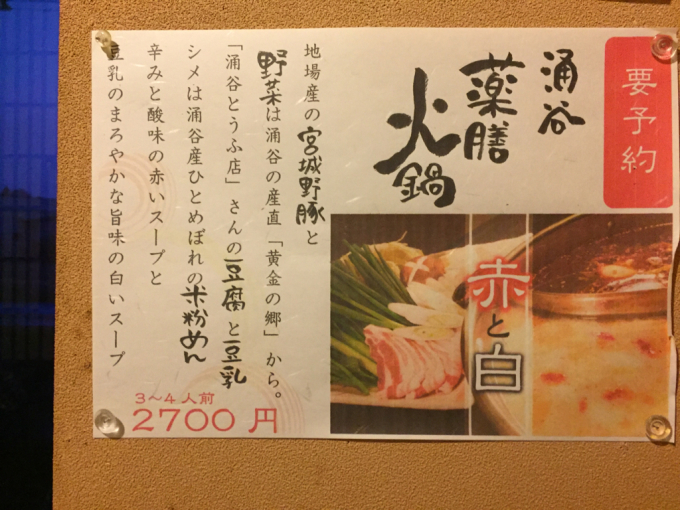 要予約
涌谷
薬膳
火鍋
赤と白
地場産の宮城野豚と
野菜は涌谷の産直「黄金の郷」から。
「涌谷とうふ店」さんの豆腐と豆乳
シメは涌谷産ひとめぼれの米粉めん
辛みと酸味の赤いスープと
豆乳のまろやかな旨味の白いスープ
3〜4人前
2700円